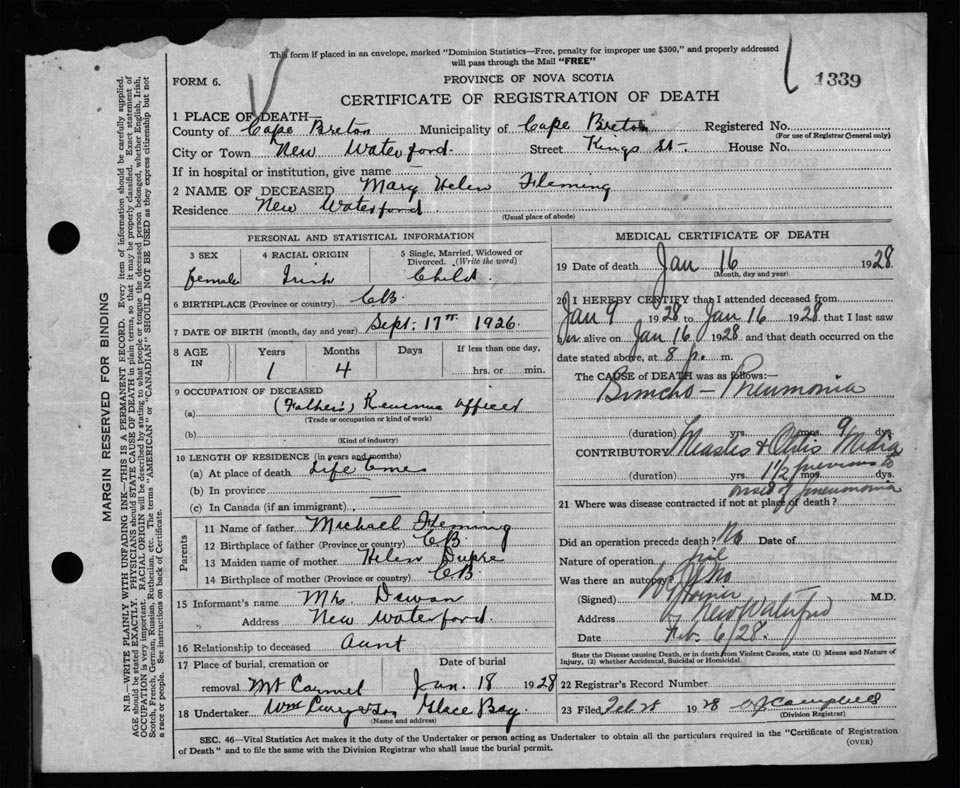 This form if placed in an envelope, marked "Dominion Statistics—Free, penalty for improper use $300," and properly addressed
will pass through the Mail "FREE"
FORM 6.
PROVINCE OF NOVA SCOTIA
1339
CERTIFICATE OF REGISTRATION OF DEATH
1 PLACE OF DEATH—
County of Cape Breton Municipality of Cape Breton Registered No.
(For use of Registrar General only)
City or Town New Waterford. Street Kings St- House No.
If in hospital or institution, give name
2 NAME OF DECEASED Mary Helen Fleming
Residence New Waterford
(Usual place of abode)
PERSONAL AND STATISTICAL INFORMATION
3 SEX 4 RACIAL ORIGIN 5 Single, Married, Widowed or
Divorced. (Write the word)
female Irish Child
6 BIRTHPLACE (Province or country) C.B.
7 DATE OF BIRTH (month, day and year) Sept. 17th 1926.
8 AGE IN Years Months Days If less than one day,
1 4 hrs. or min.
9 OCCUPATION OF DECEASED
(a) (Father's) Revenue officer
(Trade or occupation or kind of work)
(b)
(Kind of industry)
10 LENGTH OF RESIDENCE (in years and months)
(a) At place of death Life time
(b) In province
(c) In Canada (if an immigrant)
Parents
11 Name of father Michael Fleming
12 Birthplace of father (Province or country) C.B.
13 Maiden name of mother Helen Dupre
14 Birthplace of mother (Province or country) C.B.
15 Informant's name Mrs.
Address New Waterford.
16 Relationship to deceased Aunt
17 Place of burial, cremation or Date of burial
removal Mt Carmel Jan. 18 1928
18 Undertaker Wm Glace Bay
(Name and address)
MEDICAL CERTIFICATE OF DEATH
19 Date of death Jan 16 1928
(Month, day and year)
20 I HEREBY CERTIFY that I attended deceased from
Jan 9 1928 to Jan 16 1928 that I last saw
her alive on Jan 16 1928 and that death occurred on the
date stated above, at 8 p. m.
The CAUSE of DEATH was as follows:—
Broncho-Pneumonia
(duration) yrs. mos. 9 dys.
CONTRIBUTORY Measles & Otitis Media
(duration) yrs. 1 1/2 mos. dys.
previous to
onset of pneumonia
21 Where was disease contracted if not at place of death?
Did an operation precede death? No Date of
Nature of operation nil
Was there an autopsy? No
(Signed) M.D.
Address New Waterford
Date Feb. 6/28.
State the Disease causing Death, or in death from Violent Causes, state (1) Means and Nature of
Injury, (2) whether Accidental, Suicidal or Homicidal.
22 Registrar's Record Number
23 Filed Feb 28 1928 Campbell
(Division Registrar)
SEC. 46—Vital Statistics Act makes it the duty of the Undertaker or person acting as Undertaker to obtain all the particulars required in the "Certificate of Registration
of Death" and to file the same with the Division Registrar who shall issue the burial permit.
(OVER)
MARGIN RESERVED FOR BINDING
N.B.—WRITE PLAINLY WITH UNFADING INK—THIS IS A PERMANENT RECORD. Every item of information should be carefully supplied.
AGE should be stated EXACTLY. PHYSICIANS should STATE CAUSE OF DEATH in plain terms, so that it may be properly classified. Exact statement of
OCCUPATION is very important. RACIAL ORIGIN will be described by stating to what people or tongue the deceased person belonged, whether English, Irish,
Scotch, French, German, Russian, Ruthenian, etc. The terms "AMERICAN" or "CANADIAN" SHOULD NOT BE USED as they express citizenship but not
a race or people. See instructions on back of Certificate.